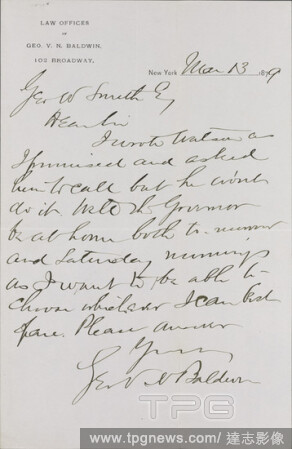 LAW OFFICES
OF
GEO. V. N. BALDWIN,
102 BROADWAY,
New York Mar 13 1879
Geo W Smith Esq
Dear Sir
I wrote Watson as
I promised and asked
him to call but he won't
do it. Will the Governor
be at home both to-morrow
and Saturday mornings
as I want to be able to
choose whichever I can best
spare. Please answer
Yours
Geo V N Baldwin
TPG
www.tpgnews.com / 達志影像